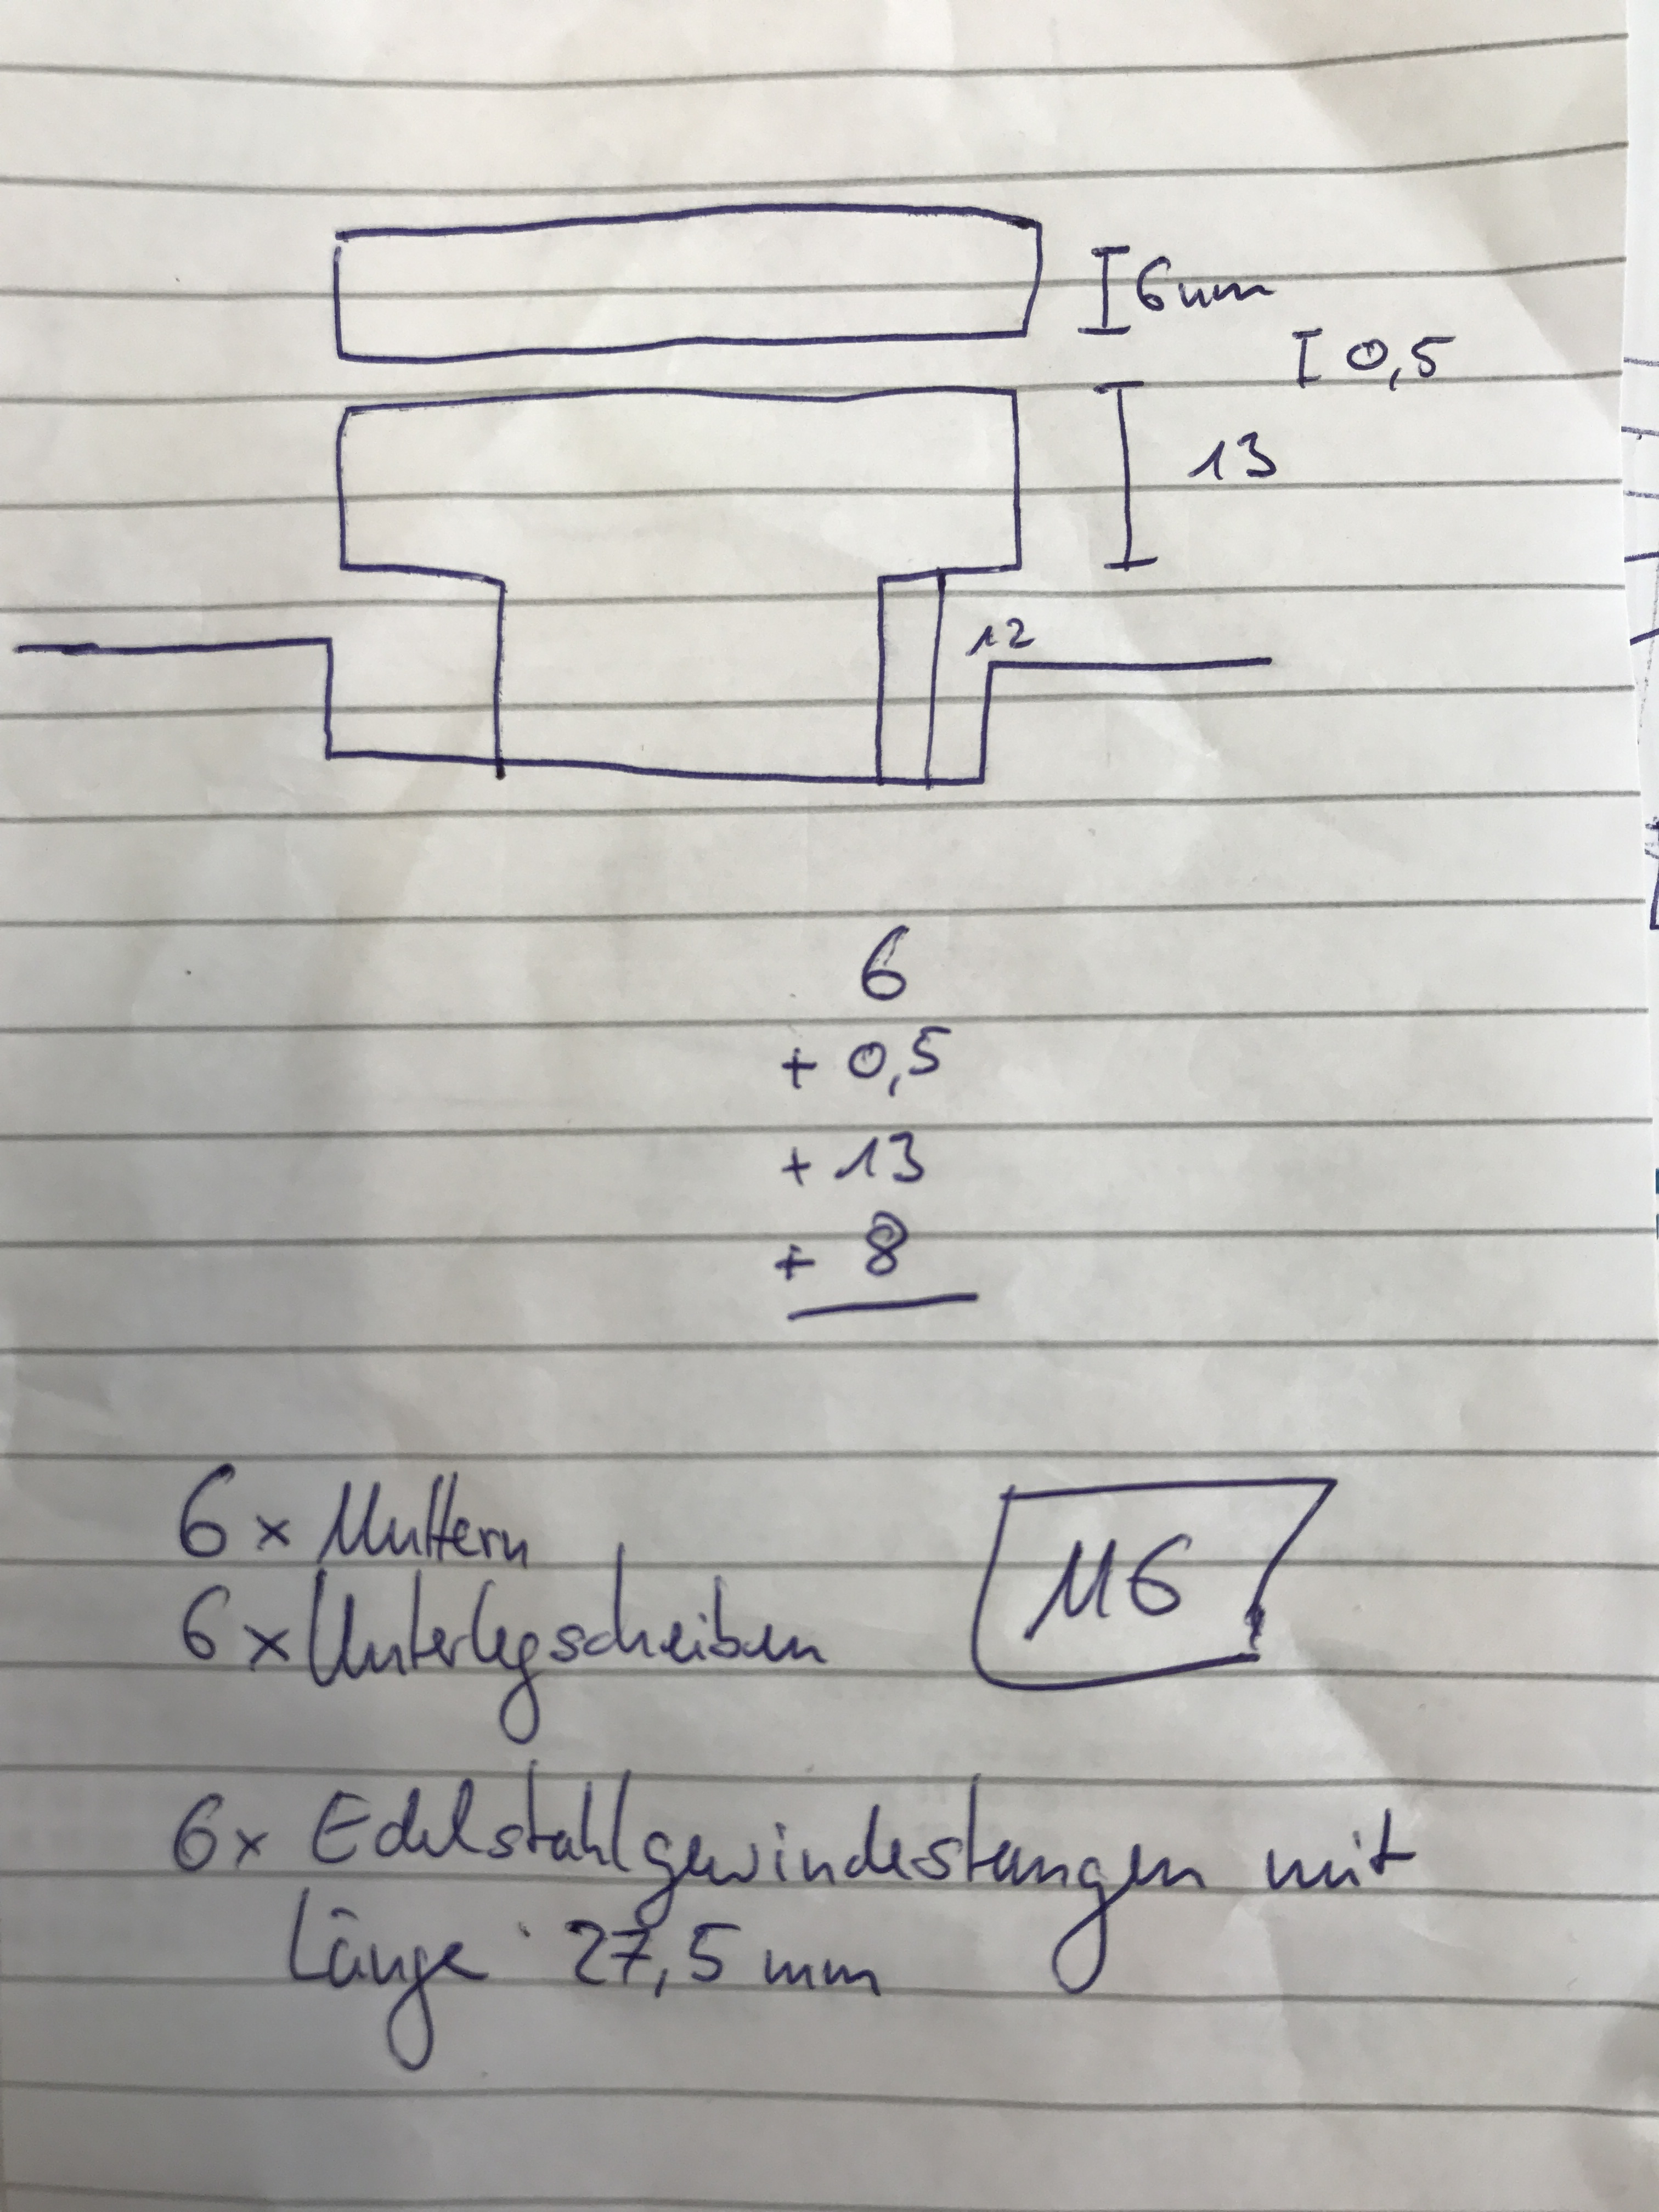 6mm
0,5
13
12
6
+ 0,5
+ 13
+ 8
6 x Muttern
6 x Unterlegscheiben
M6
6x Edelstahlgewindestangen mit
Länge: 27,5 mm